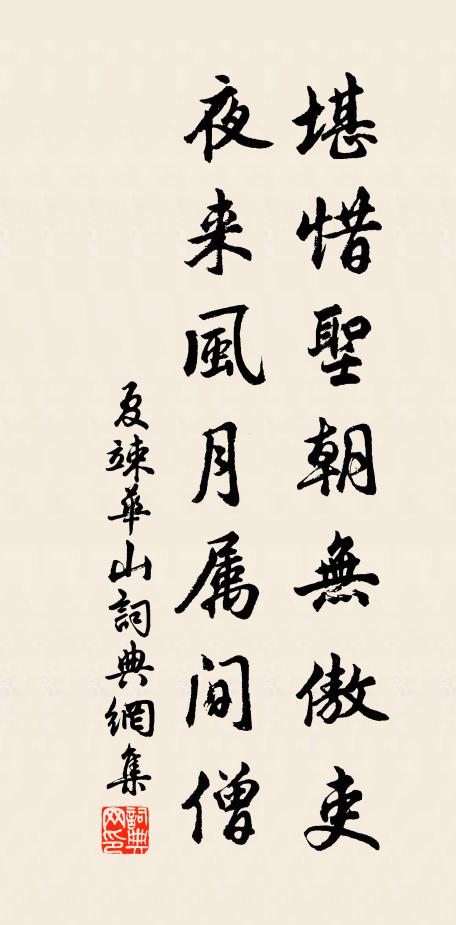 堪惜聖朝無傲吏
夜来風月属间僧
夏竦華山詞典網集
詞典網印